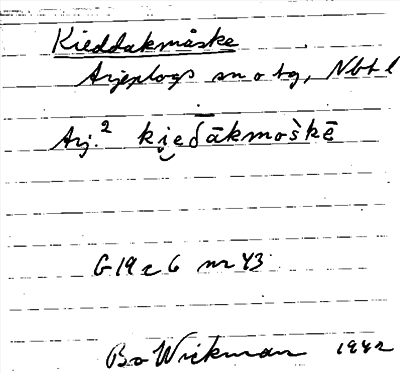 Kieddakmåske
Arjeplogs sn o tg, Nbt l
Arj.² ki̯eδ̄ākmoš̀kē
G 19 c 6 nr 43
Bo Wickman 1942